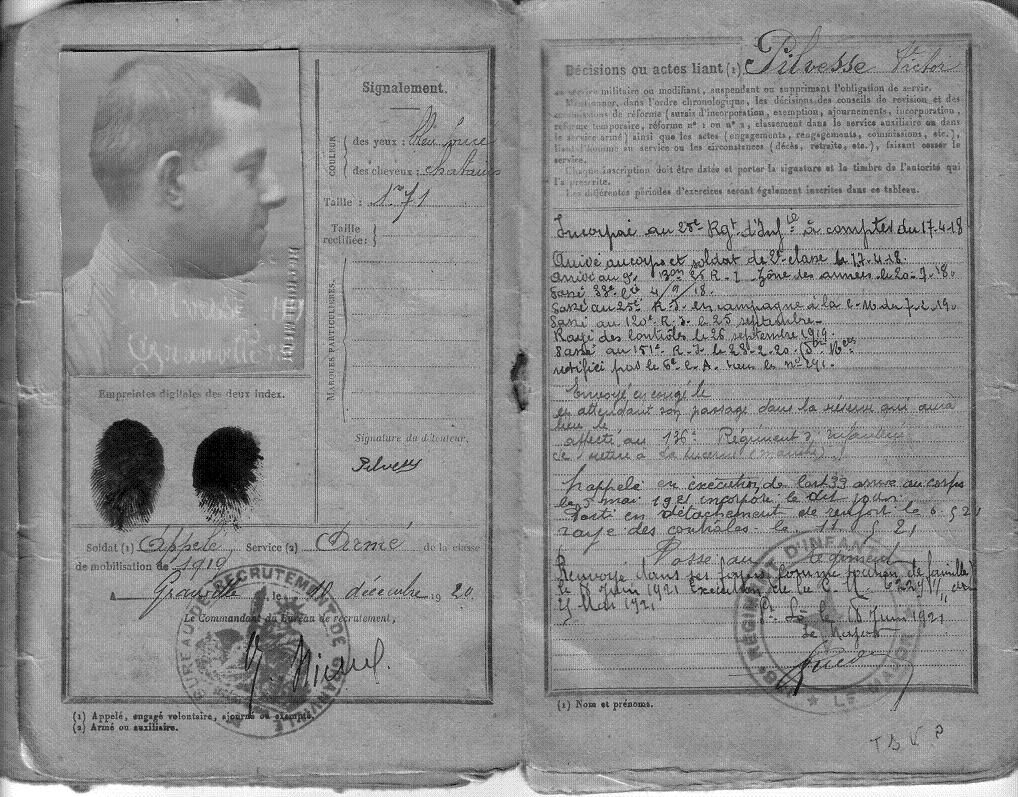 Signalement.
COULEUR
des yeux : bleu foncé
des cheveux : chatains
Taille : 1m71
Taille
rectifiée :
MARQUES PARTICULIÈRES.
Granville
Empreintes digitales des deux index.
Signature du d teur,
Pilvesse
Soldat (1) Appelé, Service (2) Armé de la classe
de mobilisation de 1919
A Granville, le 10 décembre 1920.
Le Commandant du Bureau de recrutement,
BUREAU DE RECRUTEMENT DE GRANVILLE
(1) Appelé, engagé volontaire, ajourné ou exempté.
(2) Armé ou auxiliaire.
Décisions ou actes liant (1) Pilvesse Victor
au service militaire ou modifiant, suspendant ou supprimant l'obligation de servir.
Mentionner, dans l'ordre chronologique, les décisions des conseils de revision et des
commissions de réforme (sursis d'incorporation, exemption, ajournements, incorporation,
réforme temporaire, réforme n° 1 ou n° 2, classement dans le service auxiliaire ou dans
le service armé) ainsi que les actes (engagements, rengagements, commissions, etc.),
liant l'homme au service ou les circonstances (décès, retraite, etc.), faisant cesser le
service.
Chaque inscription doit être datée et porter la signature et le timbre de l'autorité qui
l'a prescrite.
Les différentes périodes d'exercices seront également inscrites dans ce tableau.
Incorporé au 25e Rgt d'Infie à compter du 17-4-18
Arrivé au corps et soldat de 2e classe le 17-4-18.
Arrivé au 9e Bon 25 R. I. Zône des armées le 20-7-18.
Passé 33e Cie 4/9/18.
Passé au 25e R. I. en campagne à la C. M du 7-2-19.
Passé au 120e R. I. le 25 septembre.
Rayé des contrôles le 26 septembre 1919.
Passé au 151e R. I. le 28-2-20.
notifié par le 6e C. A. sous les no 291.
Envoyé en congé le
en attendant son passage dans la réserve qui aura
lieu le
affecté au 136e Régiment d'Infanterie
se retire à La Lucerne (Manche)
Rappelé en exécution de l'art 33 arrivé au corps
le 5 mai 1921 incorporé le dit jour
Parti en détachement de renfort le 6.5 21
rayé des contrôles le 11 5 21
Passé au régiment
Renvoyé dans ses foyers comme soutien de famille
le 8 Juin 1921 Exécution de la C. M. 6229 1/11 du
25 Mai 1921
St Lô le 8 Juin 1921
Le Major
RÉGIMENT D'INFANTERIE
LE MAJOR
(1) Nom et prénoms.
T S V P